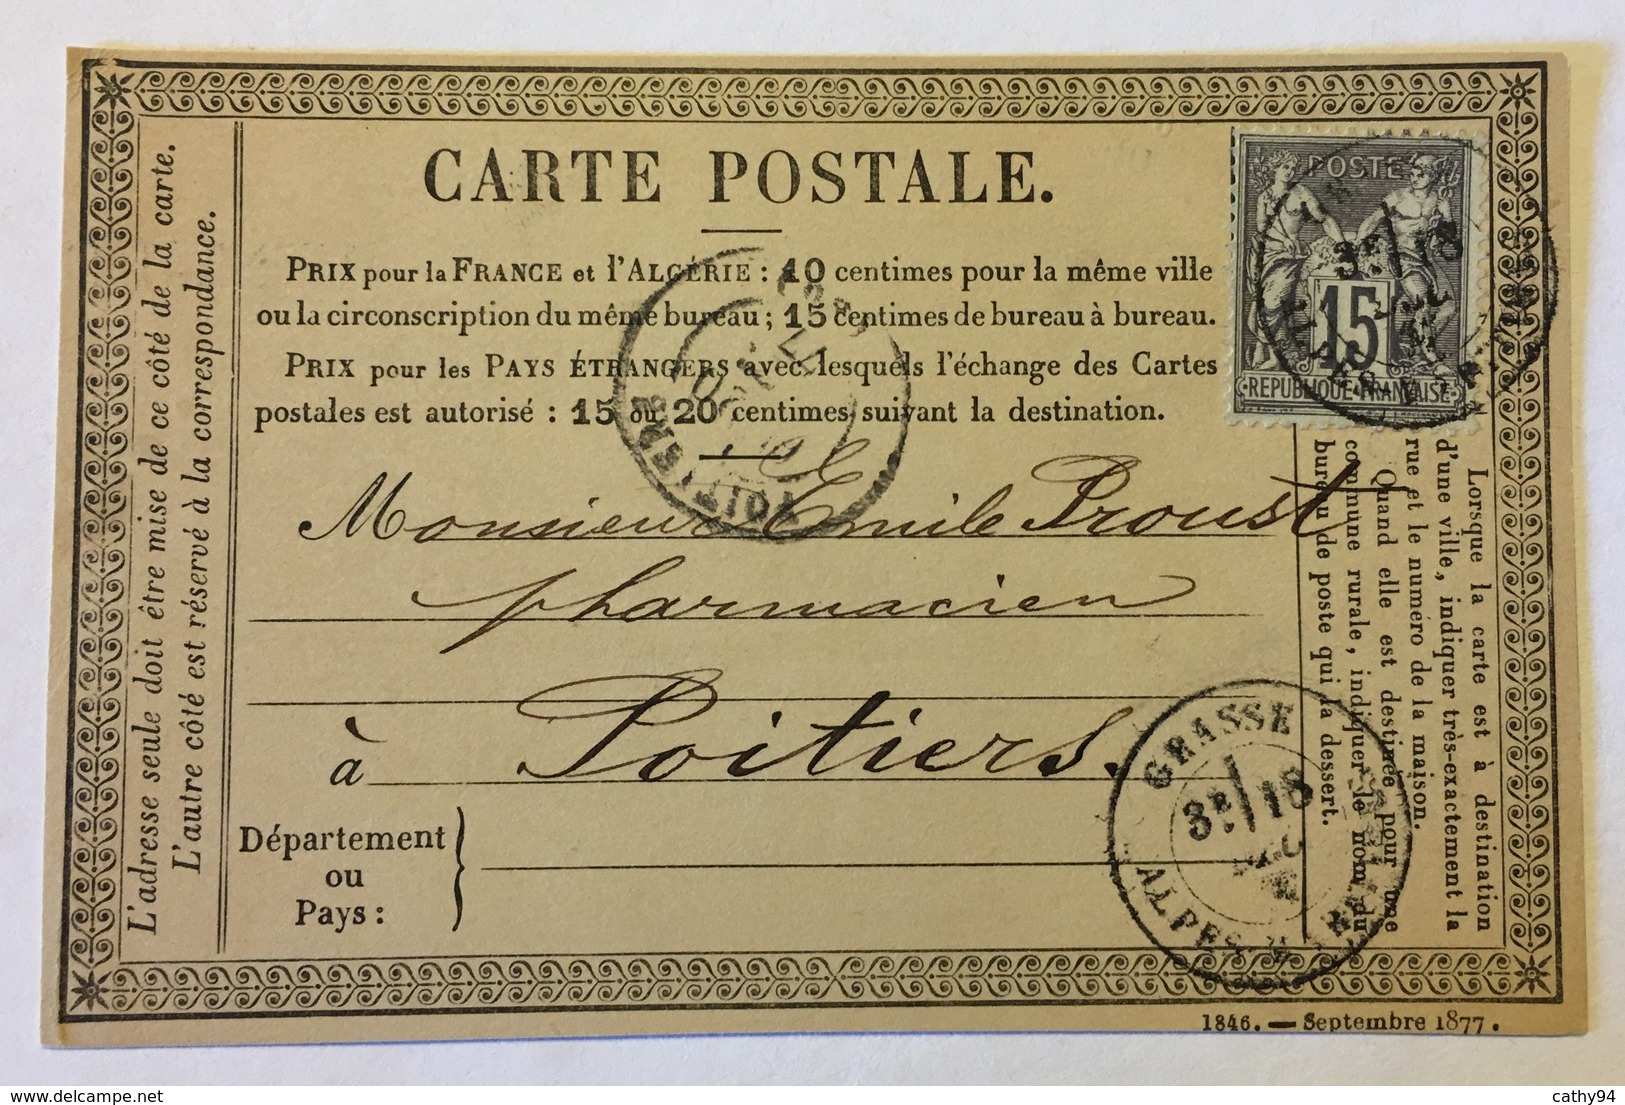 CARTE POSTALE.
PRIX pour la FRANCE et l'ALGÉRIE : 10 centimes pour la même ville
ou la circonscription du même bureau ; 15 centimes de bureau à bureau.
PRIX pour les PAYS ÉTRANGERS avec lesquels l'échange des Cartes
postales est autorisé : 15 ou 20 centimes, suivant la destination.
Monsieur Emile Proust
pharmacien
à Poitiers.
Département
ou
Pays :
L'adresse seule doit être mise de ce côté de la carte.
L'autre côté est réservé à la correspondance.
POSTE
15
REPUBLIQUE FRANÇAISE
3E/18
Lorsque la carte est à destination
d'une ville, indiquer très-exactement la
rue et le numéro de la maison.
Quand elle est destinée pour une
commune rurale, indiquer le nom du
bureau de poste qui la dessert.
POITIERS
GRASSE
3E/18
ALPES-MARITIMES
1846. — Septembre 1877.
delcampe.net
cathy94